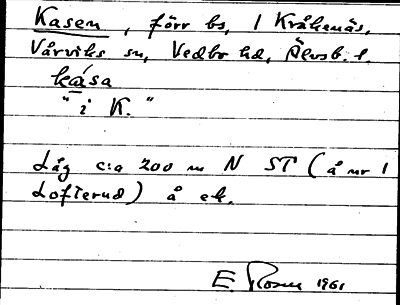 Kasen, förr bs, 1 Kråkenäs,
Vårviks sn, Vedbo hd, Älvsb. l.
ká̱sa
"i K."
Låg c:a 200 m N ST (å nr 1
Lofterud) å ek.
E. Rosén 1961